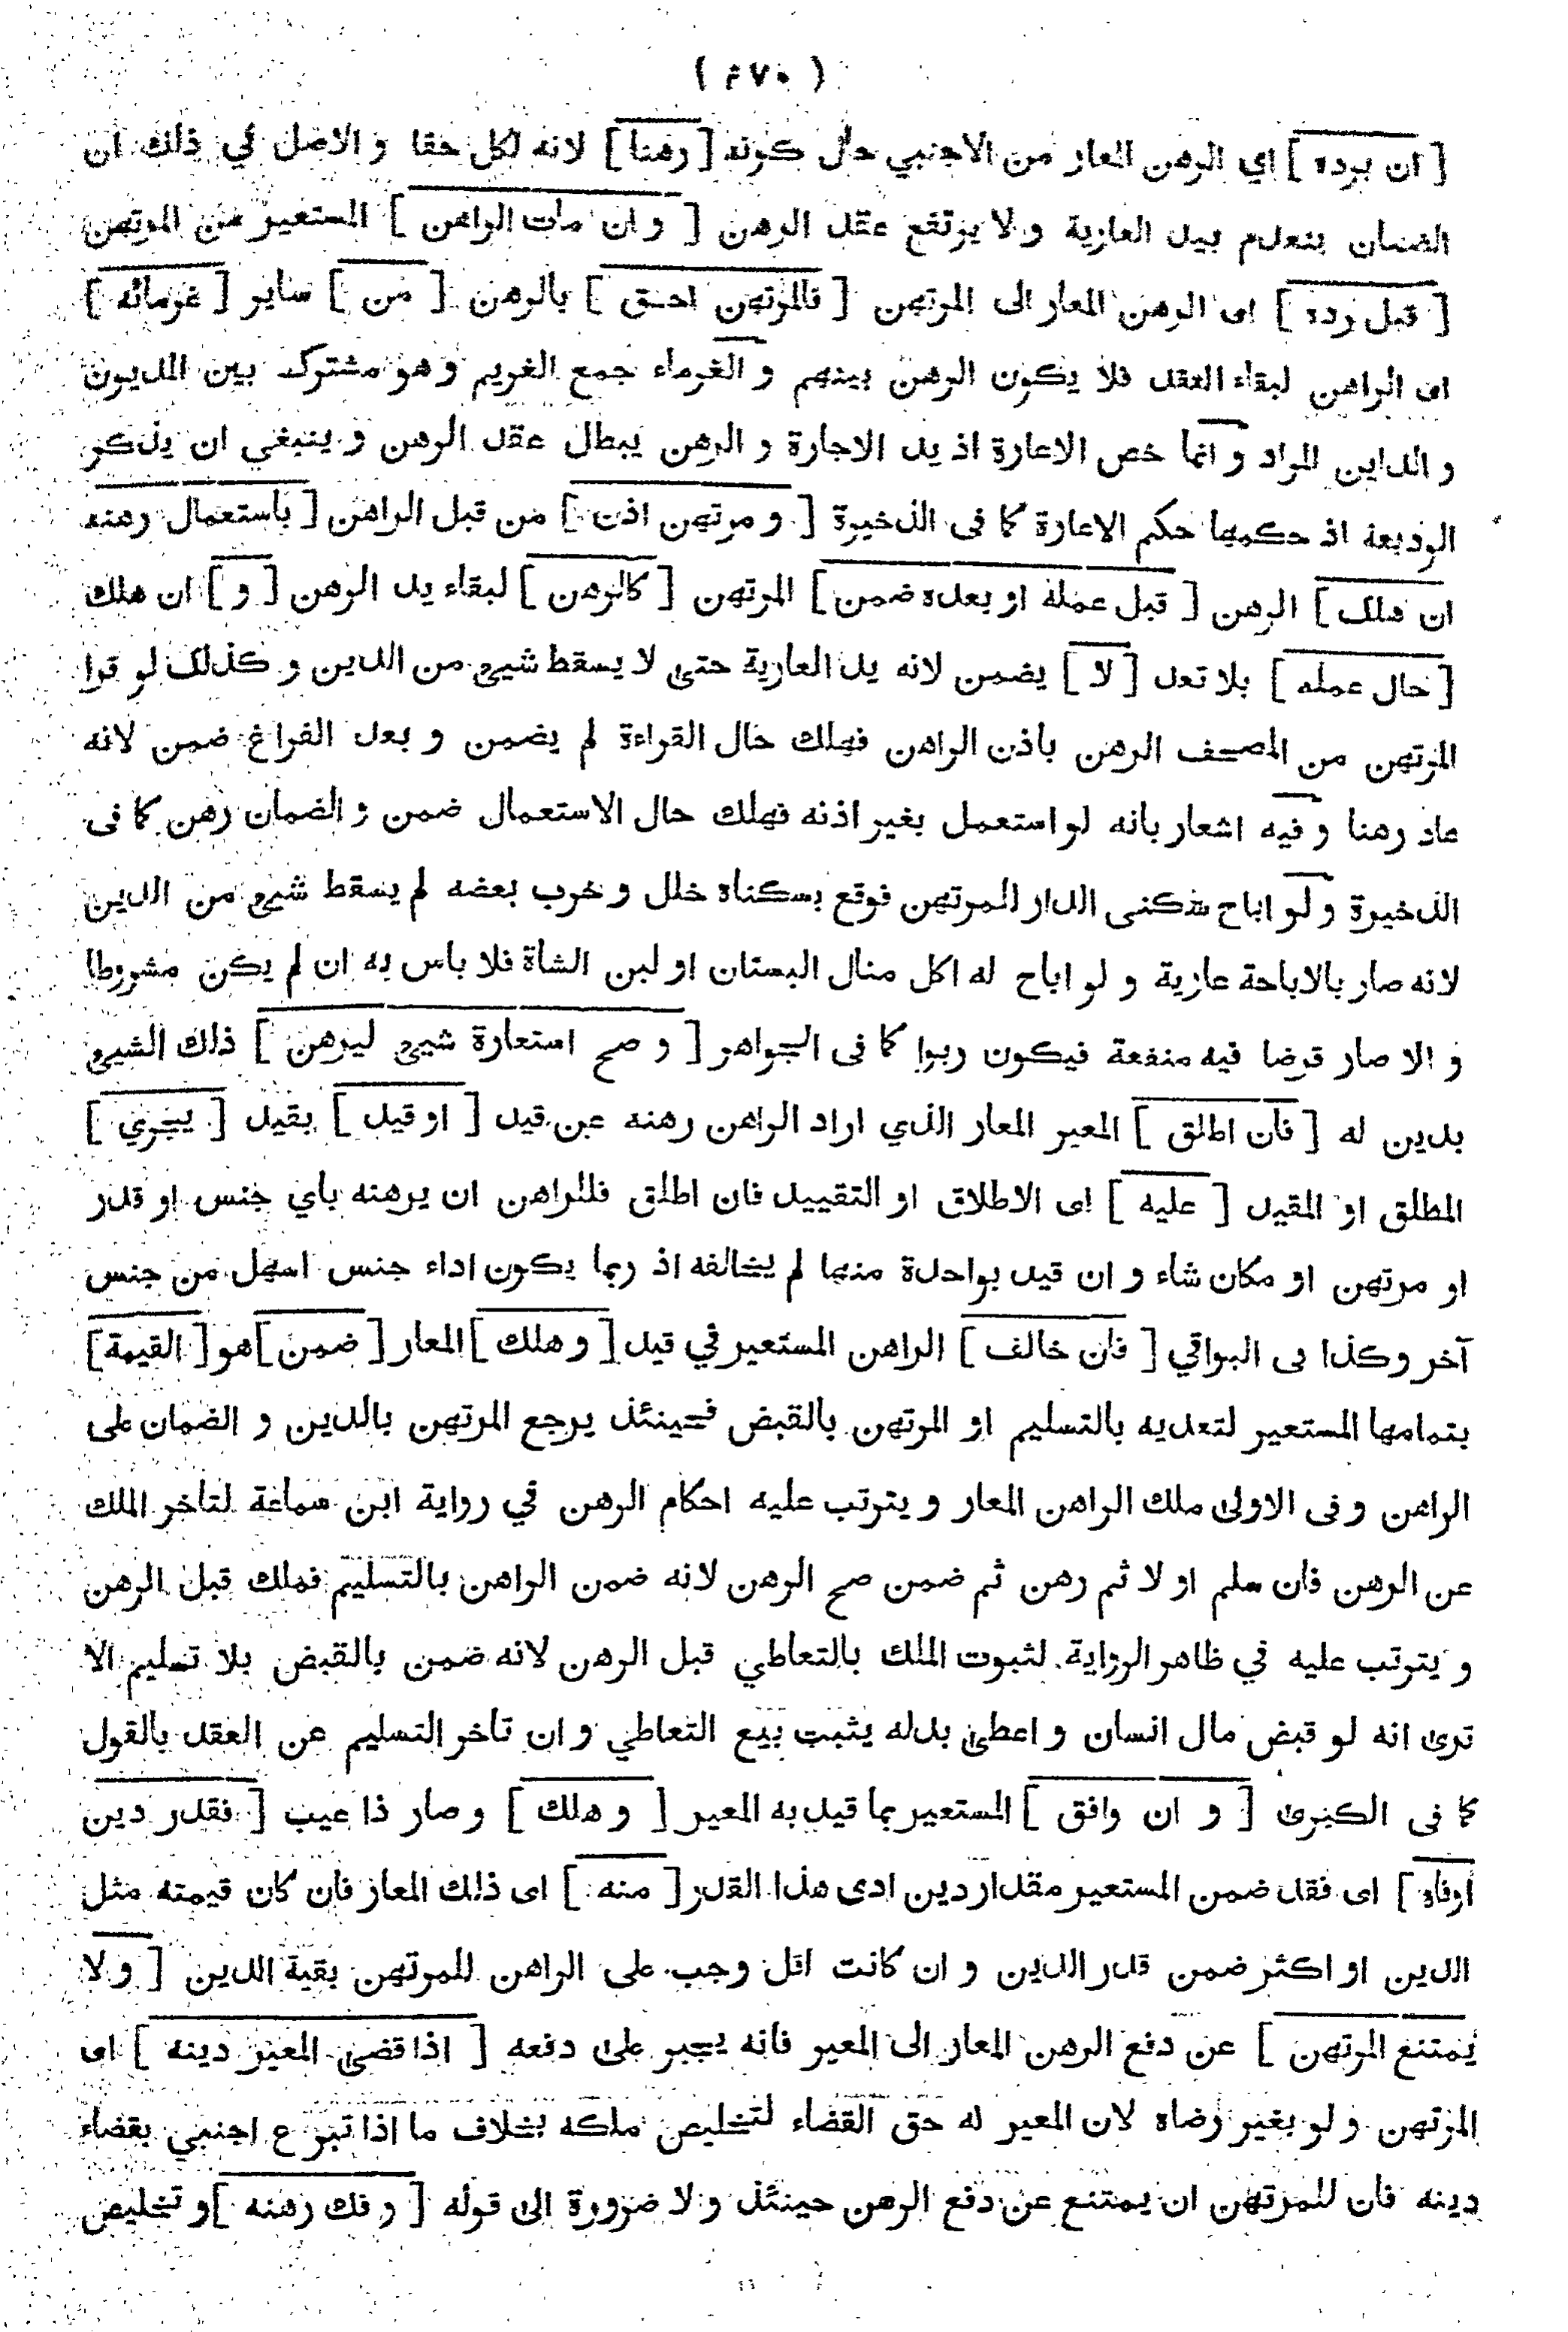 ( ٤٧٠ )
[ ان يرده ] اي الرهن المعار من الاجنبي حال كونه [ رهنا ] لانه لكل حقا و الاصل في ذلك ان
الضمان ينعدم بيد العارية و لا يرتفع عقد الرهن [ و ان مات الراهن ] المستعير من المرتهن
[ قبل رده ] اى الرهن المعار الى المرتهن [ فالمرتهن احق ] بالرهن [ من ] ساير [ غرمائه ]
اى الراهن لبقاء العقد فلا يكون الرهن بينهم و الغرماء جمع الغريم و هو مشترك بين المديون
و الداين المراد و انما خص الاعارة اذ يد الاجارة و الرهن يبطل عقد الرهن و ينبغي ان يذكر
الوديعة اذ حكمها حكم الاعارة كما فى الذخيرة [ و مرتهن اذن ] من قبل الراهن [ باستعمال رهنه
ان هلك ] الرهن [ قبل عمله او بعده ضمن ] المرتهن [ كالرهن ] لبقاء يد الرهن [ و ] ان هلك
[ حال عمله ] بلا تعد [ لا ] يضمن لانه يد العارية حتى لا يسقط شيء من الدين و كذلك لو قرا
المرتهن من المصحف الرهن باذن الراهن فهلك حال القراءة لم يضمن و بعد الفراغ ضمن لانه
عاد رهنا و فيه اشعار بانه لو استعمل بغير اذنه فهلك حال الاستعمال ضمن و الضمان رهن كما فى
الذخيرة و لو اباح سكنى الدار للمرتهن فوقع بسكناه خلل و خرب بعضه لم يسقط شيء من الدين
لانه صار بالاباحة عارية و لو اباح له اكل منال البستان او لبن الشاة فلا باس به ان لم يكن مشروطا
و الا صار قرضا فيه منفعة فيكون ربوا كما فى الجواهر [ و صح استعارة شيء ليرهن ] ذلك الشيء
بدين له [ فان اطلق ] المعير المعار الذي اراد الراهن رهنه عن قيد [ او قيد ] بقيد [ يجري ]
المطلق او المقيد [ عليه ] اى الاطلاق او التقييد فان اطلق فللراهن ان يرهنه باي جنس او قدر
او مرتهن او مكان شاء و ان قيد بواحدة منها لم يخالفه اذ ربما يكون اداء جنس اسهل من جنس
آخر وكذا فى البواقي [ فان خالف ] الراهن المستعير في قيد [ و هلك ] المعار [ ضمن ] هو [ القيمة ]
بتمامها المستعير لتعديه بالتسليم او المرتهن بالقبض فحينئذ يرجع المرتهن بالدين و الضمان على
الراهن و فى الاولى ملك الراهن المعار و يترتب عليه احكام الرهن في رواية ابن سماعة لتاخر الملك
عن الرهن فان سلم او لا ثم رهن ثم ضمن صح الرهن لانه ضمن الراهن بالتسليم فملك قبل الرهن
و يترتب عليه في ظاهر الرواية لثبوت الملك بالتعاطي قبل الرهن لانه ضمن بالقبض بلا تسليم الا
ترى انه لو قبض مال انسان و اعطى بدله يثبت بيع التعاطي و ان تاخر التسليم عن العقد بالقول
كما فى الكبرى [ و ان وافق ] المستعير بما قيد به المعير [ و هلك ] و صار ذا عيب [ فقدر دين
اوفاه ] اى فقد ضمن المستعير مقدار دين ادى هذا القدر [ منه ] اى ذلك المعار فان كان قيمته مثل
الدين او اكثر ضمن قدر الدين و ان كانت اقل وجب على الراهن للمرتهن بقية الدين [ و لا
يمتنع المرتهن ] عن دفع الرهن المعار الى المعير فانه يجبر على دفعه [ اذا قضى المعير دينه ] اى
المرتهن و لو بغير رضاه لان المعير له حق القضاء لتخليص ملكه بخلاف ما اذا تبرع اجنبي بقضاء
دينه فان للمرتهن ان يمتنع عن دفع الرهن حينئذ و لا ضرورة الى قوله [ و فك رهنه ] و تخليص